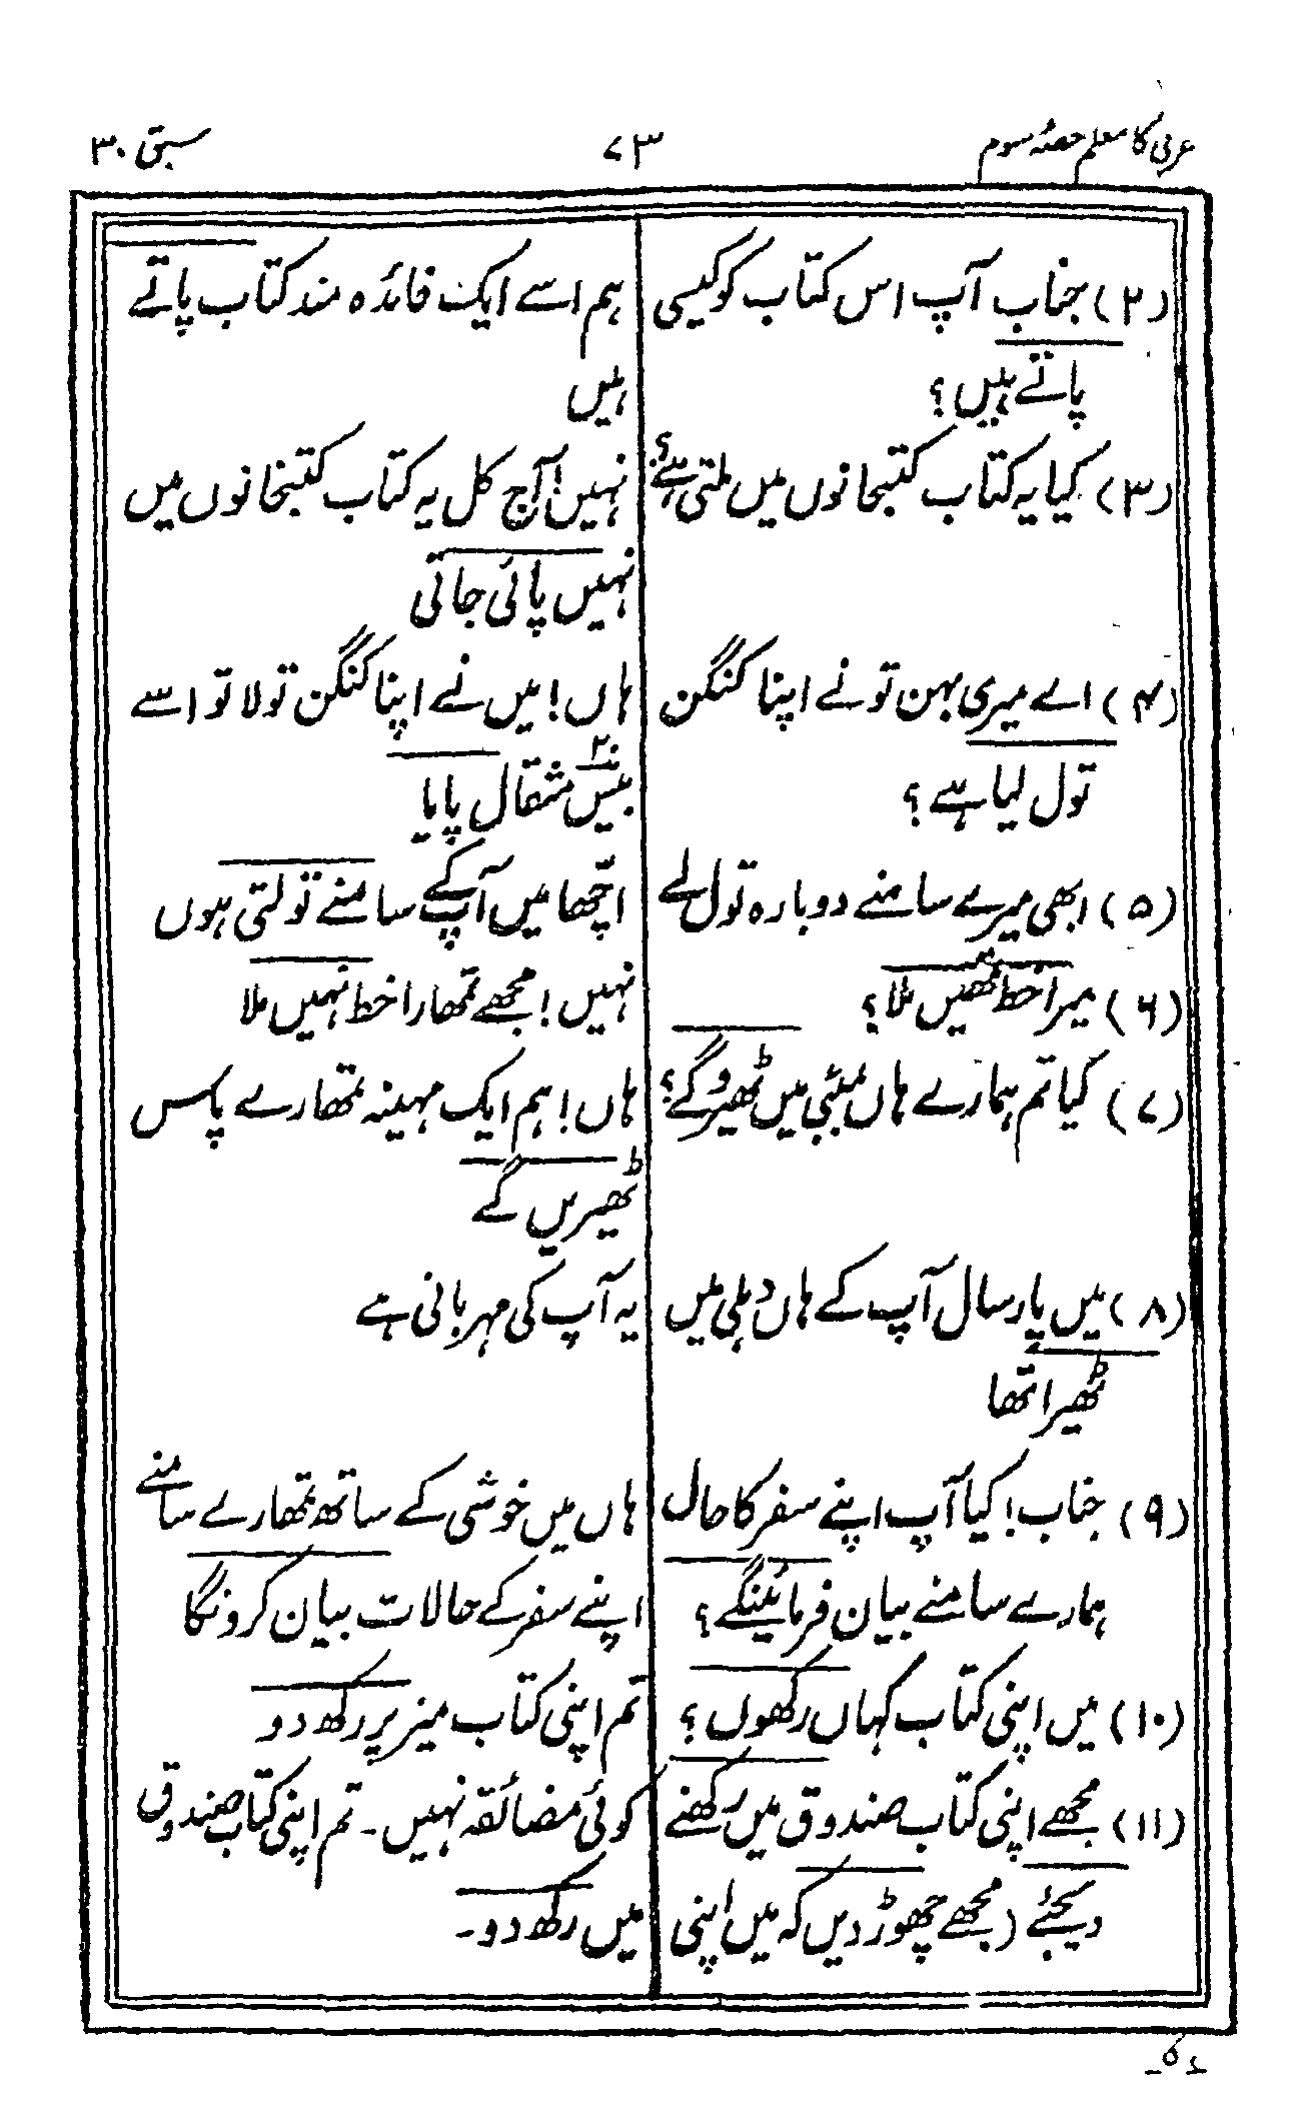 عربی کا معلم حصۂ سوم
۷۳
سبق ۳۰
(۲) جناب آپ اس کتاب کو کیسی
پاتے ہیں؟
ہم اسے ایک فائدہ مند کتاب پاتے
ہیں
(۳) کیا یہ کتاب کتبخانوں میں ملتی ہے؟
نہیں! آج کل یہ کتاب کتبخانوں میں
نہیں پائی جاتی
(۴) اے میری بہن تو نے اپنا کنگن
تول لیا ہے؟
ہاں! میں نے اپنا کنگن تولا تو اسے
بیس ۲۰ مثقال پایا
(۵) ابھی میرے سامنے دوبارہ تول لے
اچّھا میں آپ کے سامنے تولتی ہوں
(۶) میرا خط تمھیں ملا؟
نہیں! مجھے تمھارا خط نہیں ملا
(۷) کیا تم ہمارے ہاں بمبئی میں ٹھیروگے؟
ہاں! ہم ایک مہینہ تمھارے پاس
ٹھیریں گے
(۸) میں پارسال آپ کے ہاں دہلی میں
ٹھیرا تھا
یہ آپ کی مہربانی ہے
(۹) جناب! کیا آپ اپنے سفر کا حال
ہمارے سامنے بیان فرمائینگے؟
ہاں میں خوشی کے ساتھ تمھارے سامنے
اپنے سفر کے حالات بیان کرونگا
(۱۰) میں اپنی کتاب کہاں رکھوں؟
تم اپنی کتاب میز پر رکھ دو
(۱۱) مجھے اپنی کتاب صندوق میں رکھنے
دیجئے (مجھے چھوڑ دیں کہ میں اپنی
کوئی مضائقہ نہیں۔ تم اپنی کتاب صندوق
میں رکھ دو۔